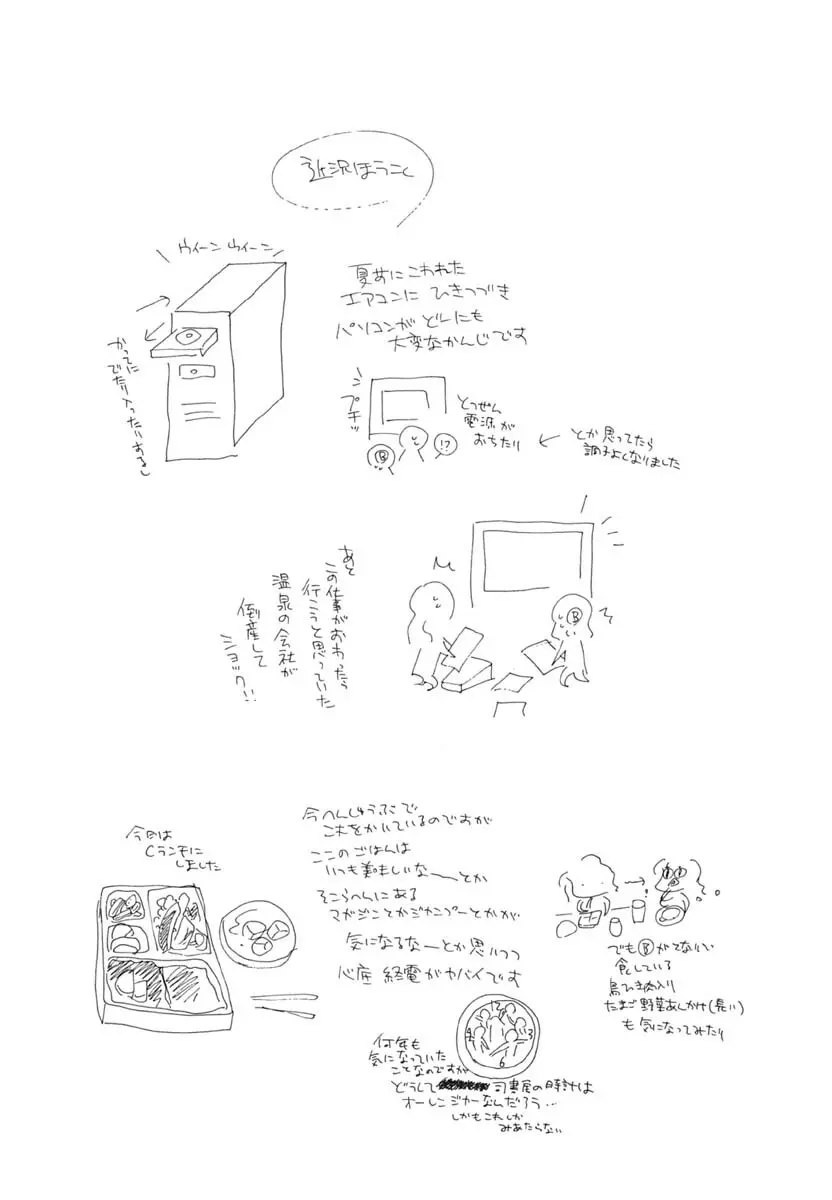 近況ほうこく
ウィーン ウィーン
かってに
でたり入ったりするし
夏前にこわれた
エアコンに ひきつづき
パソコンが どーにも
大変なかんじです
プチッ
B
!?
とつぜん
電源が
おちたり
とか思ってたら
調子よくなりました
あと
この仕事がおわったら
行こうと思っていた
温泉の会社が
倒産して
ショック!!
B
A
今へんしゅうぶで
これをかいているのですが
ここのごはんは
いつも美味しいなーとか
そこらへんにある
マガジンとかジャンプーとかが
気になるなーとか思いつつ
心底 終電がヤバイです
今日は
Cランチに
しました
でもBがてないで
食している
鳥ひき肉入り
たまご野菜あんかけ(長い)
も気になってみたり
12
3
6
9
何年も
気になっていた
ことなのですが
どうして
司書屋の時計は
オーレンジャーなんだろう…
しかもこれしか
みあたらない